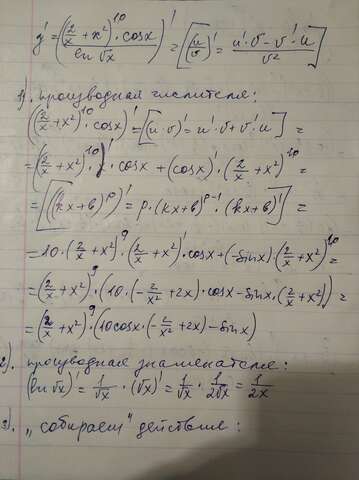 y' = ((2/x + x²)¹⁰ · cosx / ln √x)' = [(u/v)' = (u'·v - v'·u)/v²]
1). производная числителя:
((2/x + x²)¹⁰ · cosx)' = [(u·v)' = u'·v + v'·u] =
= ((2/x + x²)¹⁰)' · cosx + (cosx)' · (2/x + x²)¹⁰ =
= [((kx+b)ᵖ)' = p·(kx+b)ᵖ⁻¹·(kx+b)'] =
= 10·(2/x + x²)⁹·(2/x + x²)'·cosx + (-sinx)·(2/x + x²)¹⁰ =
= (2/x + x²)⁹·(10·(-2/x² + 2x)·cosx - sinx·(2/x + x²)) =
= (2/x + x²)⁹·(10cosx·(-2/x² + 2x) - sinx)
2). производная знаменателя:
(ln √x)' = 1/√x · (√x)' = 1/√x · 1/2√x = 1/2x
3). „собираем" действия: